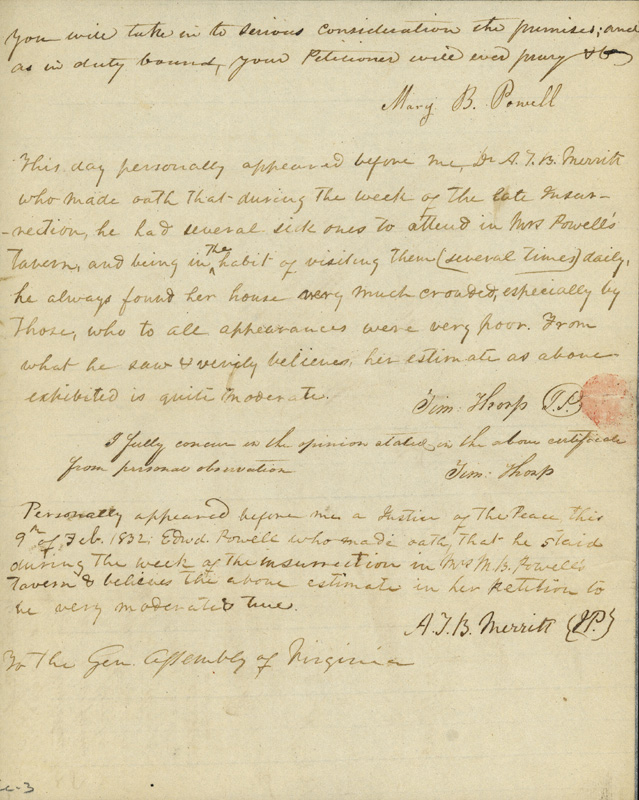 You will take in to serious consideration the premises; and
as in duty bound, your Petitioner will ever pray &c
Mary B. Powell
This day personally appeared before me, Dr A.T.B. Merritt
who made oath that during the week of the late Insur-
-rection, he had several sick ones to attend in Mrs Powell's
Tavern, and being in the habit of visiting them (several times) daily,
he always found her house very much crowded, especially by
those, who to all appearances were very poor. From
what he saw & verily believes, her estimate as above
exhibited is quite moderate.
Tim: Thorp (J.P.)
I fully concur in the opinion stated in the above certificate
from personal observation
Tim: Thorp
Personally appeared before me a Justice of the Peace, this
9th of Feb. 1832; Edwd. Powell who made oath, that he staid
during the week of the insurrection in Mrs M.B. Powell's
Tavern & believes the above estimate in her Petition to
be very moderate & true.
A.T.B. Merritt {J.P.}
To The Gen. Assembly of Virginia